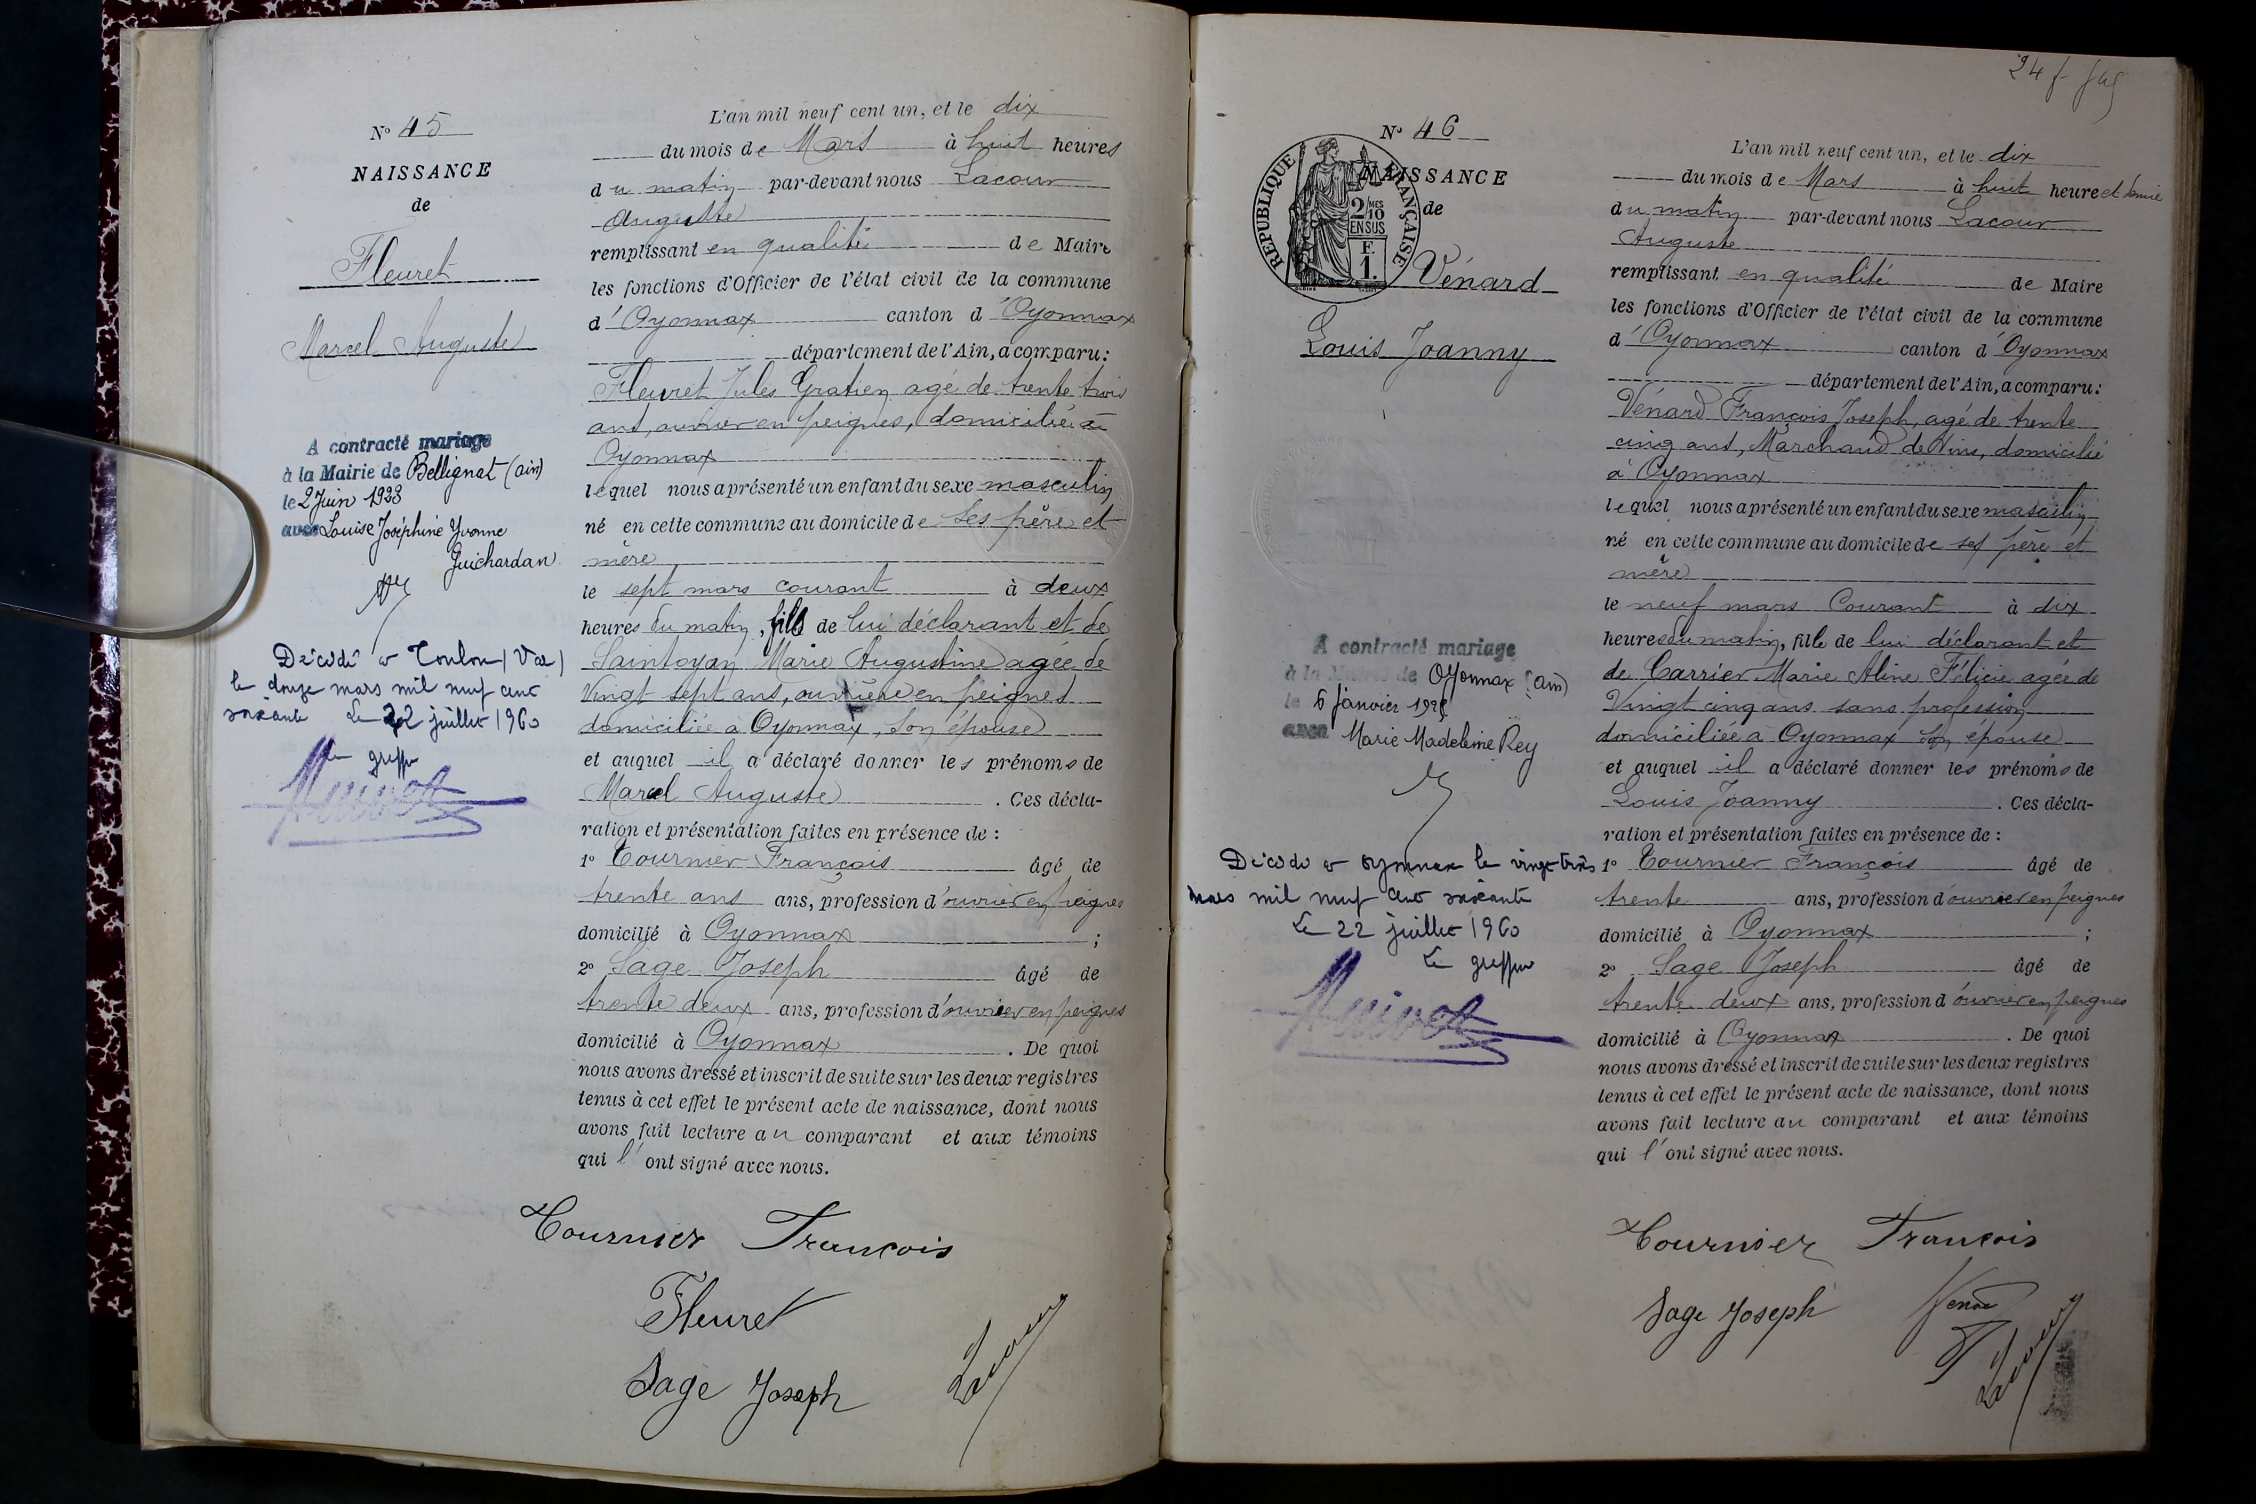 N° 45
NAISSANCE
de
Fleuret
Marcel Auguste
A contracté mariage
à la Mairie de Bellignat (ain)
le 2 Juin 1923
avec Louise Joséphine Yvonne
Guichardan
Décédé à Toulon (Var)
le douze mars mil neuf cent
soixante Le 22 juillet 1960
Le greffier
L'an mil neuf cent un, et le dix
du mois de Mars à huit heures
du matin par-devant nous Lacour
Auguste
remplissant en qualité de Maire
les fonctions d'Officier de l'état civil de la commune
d'Oyonnax canton d'Oyonnax
département de l'Ain, a comparu:
Fleuret Jules Gratien agé de trente trois
ans, ouvrier en peignes, domicilié à
Oyonnax
lequel nous a présenté un enfant du sexe masculin
né en cette commune au domicile de ses père et
mère
le sept mars courant à deux
heures du matin, fils de lui déclarant et de
Saintoyan Marie Augustine agée de
Vingt sept ans, ouvrière en peignes
domiciliée à Oyonnax, son épouse
et auquel il a déclaré donner les prénoms de
Marcel Auguste. Ces décla-
ration et présentation faites en présence de :
1° Tournier François âgé de
trente ans ans, profession d'ouvrier en peignes
domicilié à Oyonnax ;
2° Sage Joseph âgé de
trente deux ans, profession d'ouvrier en peignes
domicilié à Oyonnax. De quoi
nous avons dressé et inscrit de suite sur les deux registres
tenus à cet effet le présent acte de naissance, dont nous
avons fait lecture au comparant et aux témoins
qui l'ont signé avec nous.
Tournier François
Fleuret
Sage Joseph
Lacour
N° 46
NAISSANCE
de
RÉPUBLIQUE FRANÇAISE
2/10 MES
EN SUS
F.
1.
Vénard
Louis Joanny
A contracté mariage
à la Mairie de Oyonnax (ain)
le 6 janvier
avec Marie Madeleine Rey
Décédé à Oyonnax le vingt trois
mars mil neuf cent soixante
Le 22 juillet 1960
Le greffier
L'an mil neuf cent un, et le dix
du mois de Mars à huit heure et demie
du matin par-devant nous Lacour
Auguste
remplissant en qualité de Maire
les fonctions d'Officier de l'état civil de la commune
d'Oyonnax canton d'Oyonnax
département de l'Ain, a comparu:
Vénard François Joseph, agé de trente
cinq ans, Marchand de Vins, domicilié
à Oyonnax
lequel nous a présenté un enfant du sexe masculin
né en cette commune au domicile de ses père et
mère
le neuf mars Courant à dix
heures du matin, fils de lui déclarant et
de Carrier Marie Aline Félicie agée de
Vingt cinq ans sans profession
domiciliée à Oyonnax son épouse
et auquel il a déclaré donner les prénoms de
Louis Joanny. Ces décla-
ration et présentation faites en présence de :
1° Tournier François âgé de
trente ans, profession d'ouvrier en peignes
domicilié à Oyonnax ;
2° Sage Joseph âgé de
trente deux ans, profession d'ouvrier en peignes
domicilié à Oyonnax. De quoi
nous avons dressé et inscrit de suite sur les deux registres
tenus à cet effet le présent acte de naissance, dont nous
avons fait lecture au comparant et aux témoins
qui l'ont signé avec nous.
Tournier François
Sage Joseph
Lacour